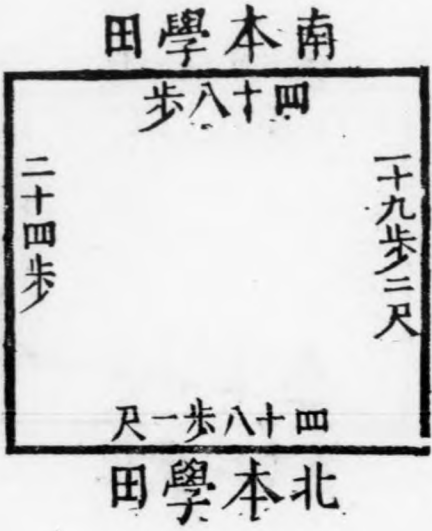 南本學田
四十八步
一十九步二尺
二十四步
四十八步一尺
北本學田